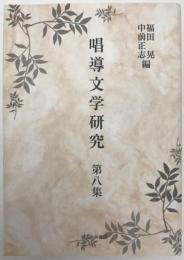 福田晃
中前正志 編
唱導文学研究 第八集